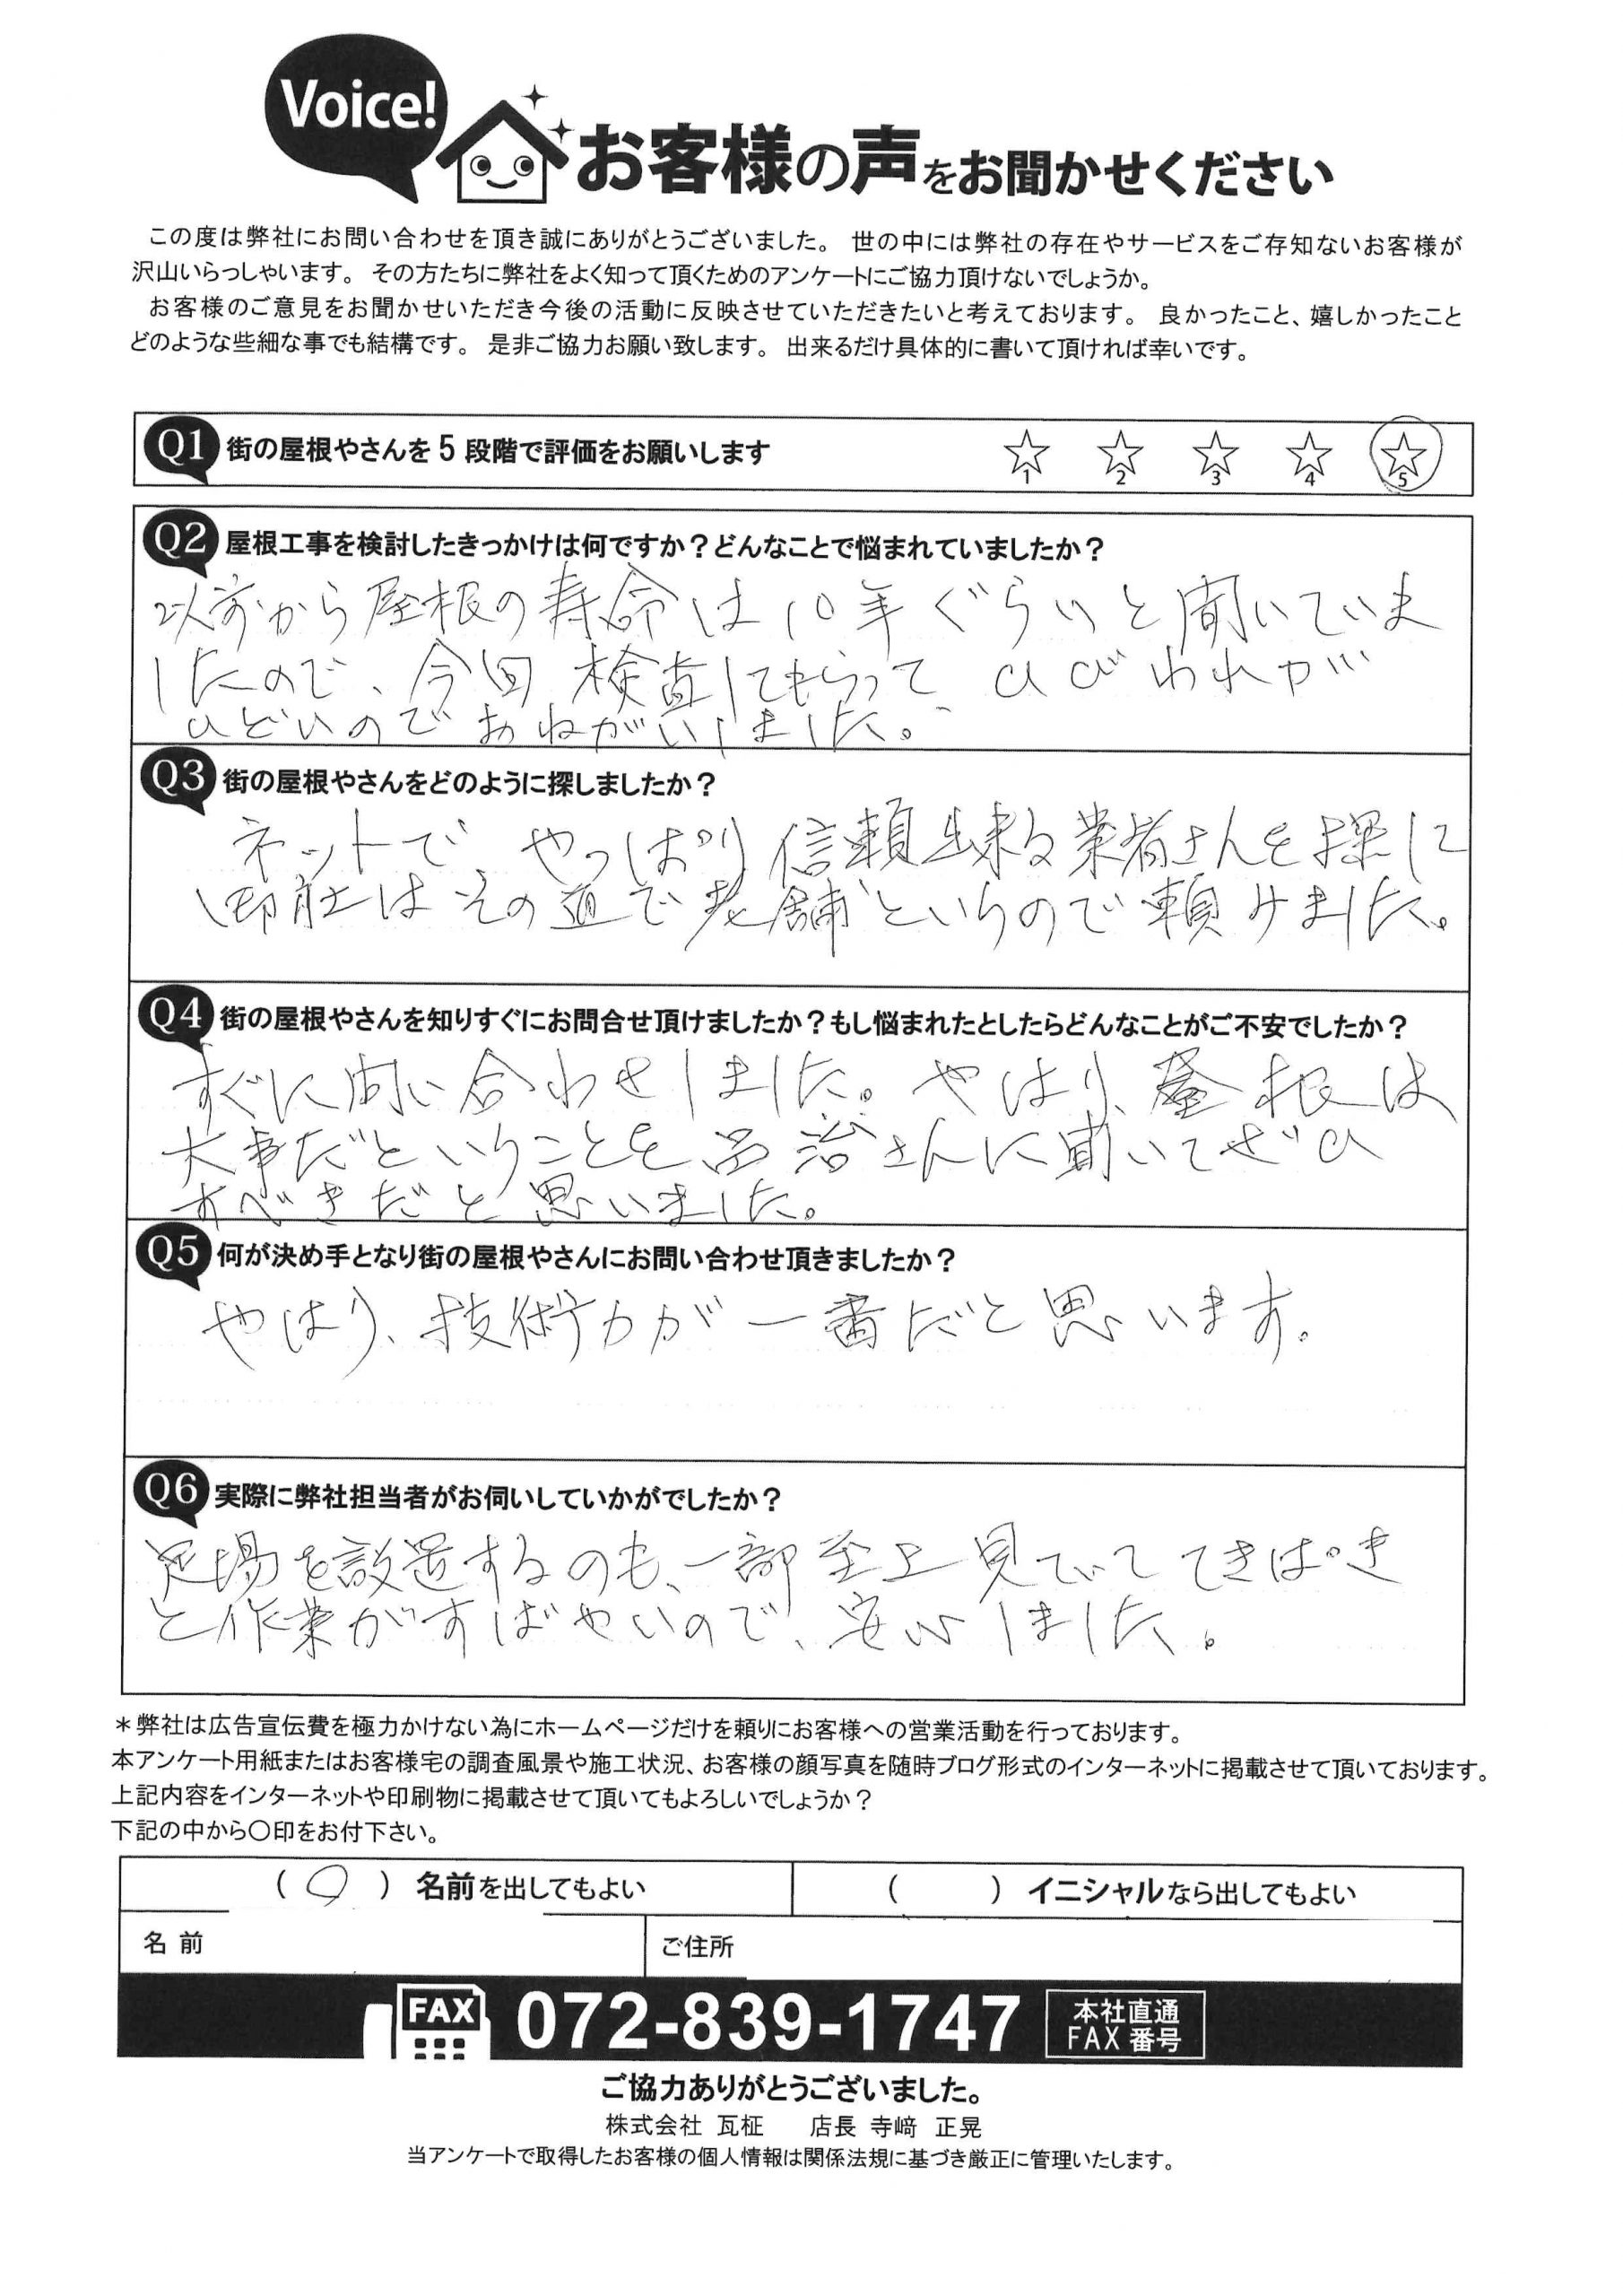 Voice!
お客様の声をお聞かせください
この度は弊社にお問い合わせを頂き誠にありがとうございました。 世の中には弊社の存在やサービスをご存知ないお客様が
沢山いらっしゃいます。 その方たちに弊社をよく知って頂くためのアンケートにご協力頂けないでしょうか。
お客様のご意見をお聞かせいただき今後の活動に反映させていただきたいと考えております。 良かったこと、嬉しかったこと
どのような些細な事でも結構です。 是非ご協力お願い致します。 出来るだけ具体的に書いて頂ければ幸いです。
Q1 街の屋根やさんを5段階で評価をお願いします ☆1 ☆2 ☆3 ☆4 ☆5
Q2 屋根工事を検討したきっかけは何ですか？どんなことで悩まれていましたか？
以前から屋根の寿命は10年ぐらいと聞いていま
したので、今回検査してもらって、ひびわれが
ひどいのでおねがいしました。
Q3 街の屋根やさんをどのように探しましたか？
ネットで、やっぱり信頼出来る業者さんを探して
御社はその道で老舗というので頼みました。
Q4 街の屋根やさんを知りすぐにお問合せ頂けましたか？もし悩まれたとしたらどんなことがご不安でしたか？
すぐに問い合わせしました。やはり、屋根は
大事だということを さんに聞いてぜひ
すべきだと思いました。
Q5 何が決め手となり街の屋根やさんにお問い合わせ頂きましたか？
やはり、技術力が一番だと思います。
Q6 実際に弊社担当者がお伺いしていかがでしたか？
足場を設置するのも、一部 見ていててきぱき
と作業がすばやいので、安心しました。
＊弊社は広告宣伝費を極力かけない為にホームページだけを頼りにお客様への営業活動を行っております。
本アンケート用紙またはお客様宅の調査風景や施工状況、お客様の顔写真を随時ブログ形式のインターネットに掲載させて頂いております。
上記内容をインターネットや印刷物に掲載させて頂いてもよろしいでしょうか？
下記の中から〇印をお付下さい。
（〇）名前を出してもよい （ ）イニシャルなら出してもよい
名前 ご住所
FAX 072-839-1747 本社直通
FAX 番号
ご協力ありがとうございました。
株式会社 瓦柾 店長 寺﨑 正晃
当アンケートで取得したお客様の個人情報は関係法規に基づき厳正に管理いたします。